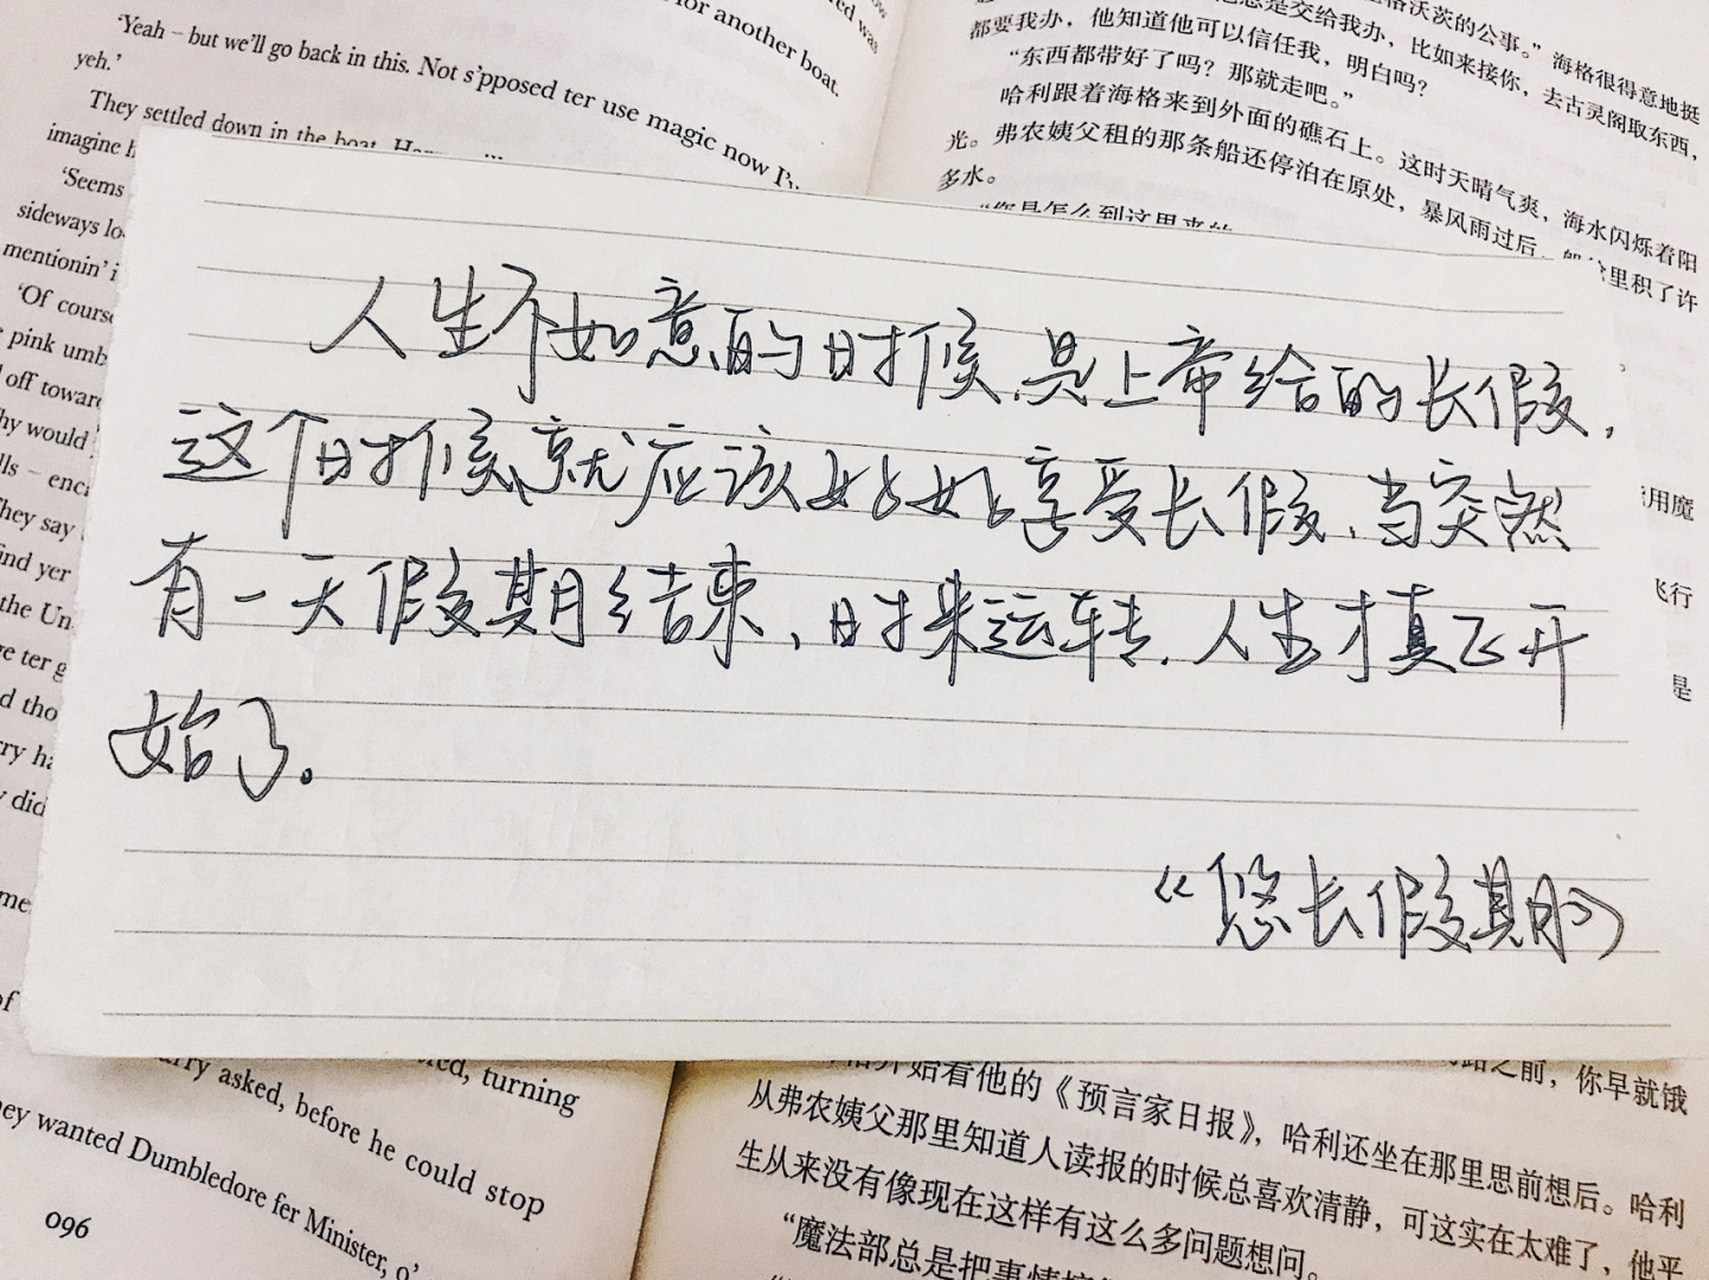 'Yeah – but we'll go back in this. Not s'pposed ter use magic now I'v
for another boat.
yeh.'
They settled down in the boat.
imagine
'Seems
sideways lo
mentionin' i
'Of course
pink umb
off toward
hy would
lls – enc
hey say
ind yer
the Un
ve ter g
d tho
rry ha
did
格沃茨的公事。”海格很得意地挺
都要我办，他知道他可以信任我，明白吗？
总是交给我办，比如来接你，去古灵阁取东西，
“东西都带好了吗？那就走吧。”
哈利跟着海格来到外面的礁石上。这时天晴气爽，海水闪烁着阳
光。弗农姨父租的那条船还停泊在原处，暴风雨过后，船舱里积了许
多水。
“您是怎么到这里来的
用魔
飞行
是
人生不如意的时候，是上帝给的长假，
这个时候就应该好好享受长假，当突然
有一天假期结束，时来运转，人生才真正开
始了。
《悠长假期》
turning
arry asked, before he could stop
ey wanted Dumbledore fer Minister, o'
096
开始看他的《预言家日报》，哈利还坐在那里思前想后。哈利
之前，你早就饿
从弗农姨父那里知道人读报的时候总喜欢清静，可这实在太难了，他平
生从来没有像现在这样有这么多问题想问。
“魔法部总是把事情搞